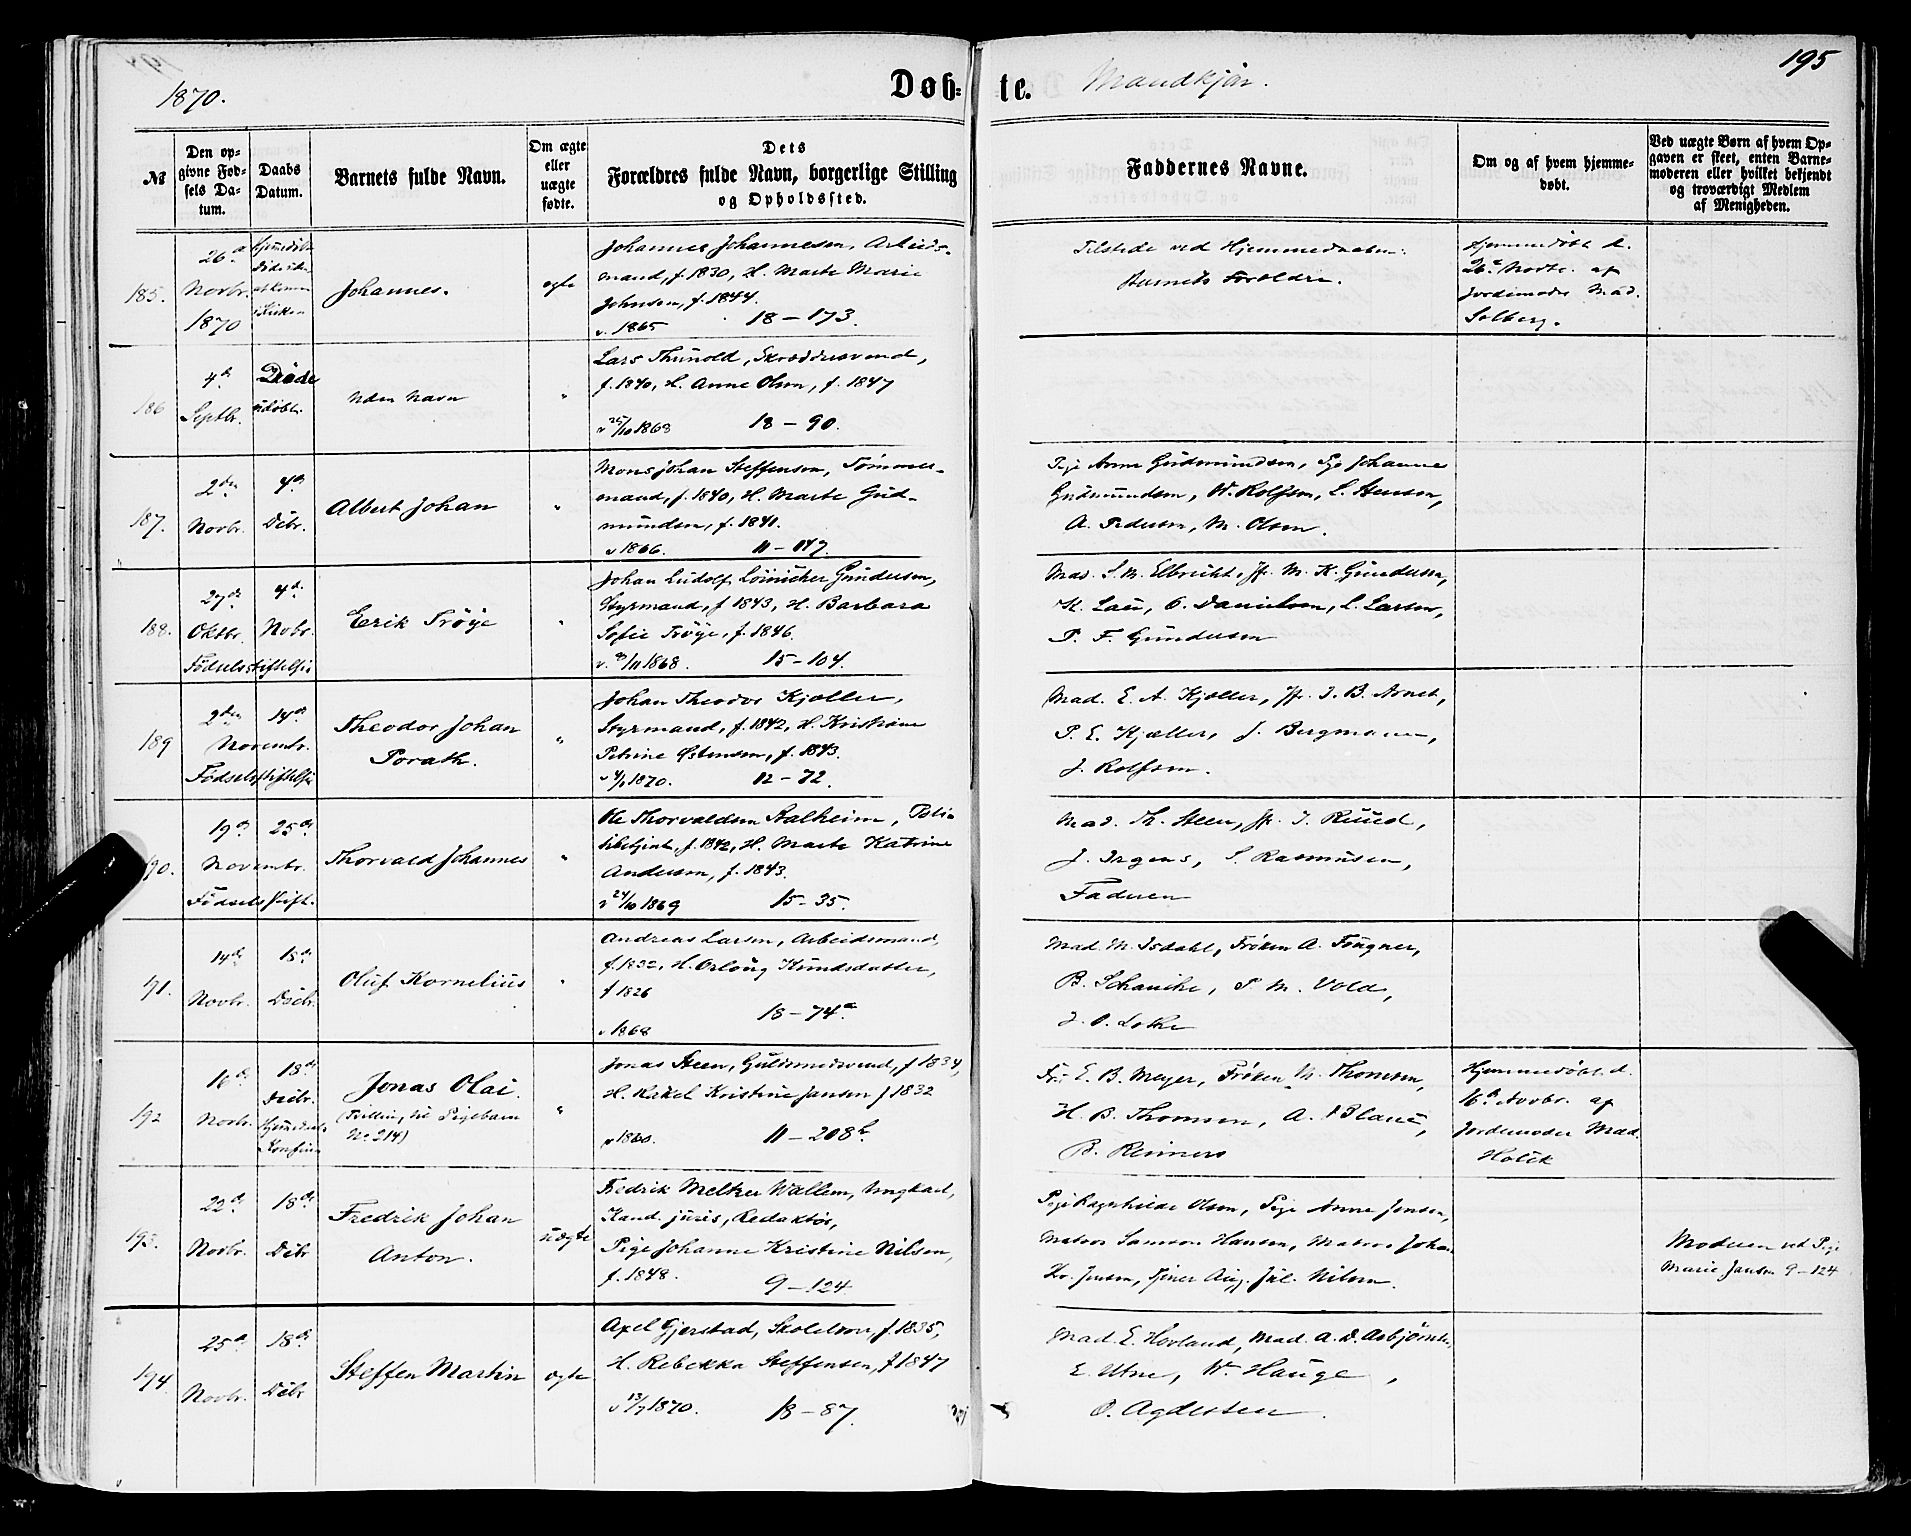 195
1870.
Døb- te. Mandkjøn.
№
Den opgivne Fødsels Datum.
Daabs Datum.
Barnets fulde Navn.
Om ægte eller uægte fødte.
Dets Forældres fulde Navn, borgerlige Stilling og Opholdssted.
Faddernes Navne.
Om og af hvem hjemmedøbt.
Ved uægte Børn af hvem Opgaven er skeet, enten Barnemoderen eller hvilket bekjendt og troværdigt Medlem af Menigheden.
185.
26de Novbr. 1870
Johannes.
ægte
Johannes Johannesen, Arbeids-
mand, f. 1830, H. Marte Marie
Johnsen, f. 1844.
v. 1865 18 – 173.
Tilstede ved Hjemmedaaben:
Barnets Foreldre.
Hjemmedøbt d.
26de Novbr. af
Jordemoder Mad.
Solberg.
186
4de Septbr.
Døde udøbt.
Uden Navn
"
Lars Thunold, Skræddersvend,
f. 1840, H. Anne Olsen, f. 1847
18 – 90.
187.
2den Novbr.
4de Debr.
Albert Johan
"
Mons Johan Steffensen, Tømmer-
mand, f. 1840, H. Marte Gud-
mundsen, f. 1841.
v 1866.
Pige Anne Gudmundsen, Pige Johanne
Gudmundsen, W. Rolfsen, L. Hansen,
A. Pedersen, M. Olsen.
188.
27de Oktbr.
4de Nobr.
Fødselsstiftelsen
Erik Trøye
"
Johan Ludolf Gundersen,
Styrmand, f 1843, H. Barbara
Sofie Trøye, f. 1846.
15 – 104.
Mad. S. M. Elbrecht, Jfr. M. K. Gundersen,
K. Lau, O. Danielsen, L. Larsen,
P. F. Gundersen
189
2den 14de
Novembr.
Fødselsstiftelsen
Theodor Johan
Porath.
"
Johan Theodor Kjøller,
Styrmand, f. 1842, H. Kristiane
Petrine Østensen, f. 1843.
1870. 12 – 72.
Mad. E. A. Kjøller, Jfr. J. B. Arnet,
P. E. Kjøller, J. Bergmann,
J. Rolfsen.
190.
19de 25de
Novembr.
Fødselsstift.
Thorvald Johannes
"
Ole Thorvaldsen Stalheim, Poli-
tibetjent, f. 1842, H. Marte Katrine
Andersen, f. 1843.
v 24/10 1869 15 – 35.
Mad. Th. Steen, Jfr. J. Ruud,
J. Irgens, S. Rasmusen,
Faderen
191.
14de Novbr.
18de Debr.
Oluf Kornelius
"
Andreas Larsen, Arbeidsmand,
f. 1832, H. Orloug Knudsdatter,
f 1826
18 – 74a.
v 1868
Mad. M. Isdahl, Frøken A. Fougner,
B. Schanche, P. M. Vold,
J. O. Lothe
192
16de Novbr.
18de Debr.
Jonas Olai.
(Tvilling, se Pigebarn
No 214)
"
Jonas Steen, Guldsmedsvend, f 1834,
H. Rakel Kristine Jansen f 1832
v 1860. 11 – 208b.
Fru E. B. Meyer, Frøken M. Thomsen,
H. B. Thomsen, A. Blauw,
B. Reimers
Hjemmedøbt d.
16de Novbr. af
Jordemoder Mad.
Holck
193.
22de Novbr.
18de Debr
Fredrik Johan
Anton.
uægte
Fredrik Meltzer Wallem, Ungkarl,
Kand. juris, Redaktør,
Pige Johanne Kristine Nilsen,
f. 1848. 9 – 124
Pige Ragnhilde Olsen, Pige Anne Jensen,
Matros Samson Hansen, Matros Johan
Jensen, Tjener Aug. Jul. Nilsen.
Moderen ved Pige
Marie Jansen 9 – 124
194.
25de Novbr.
18de Debr
Steffen Martin
ægte
Axel Gjerstad, Skolelærer, f. 1835,
H. Rebekka Steffensen, f 1847
v 13/7 1870. 18 – 87.
Mad. E. Hovland, Mad. A. D. Asbjørnsen,
E. Utne, W. Hauge,
O. Agdesteen.